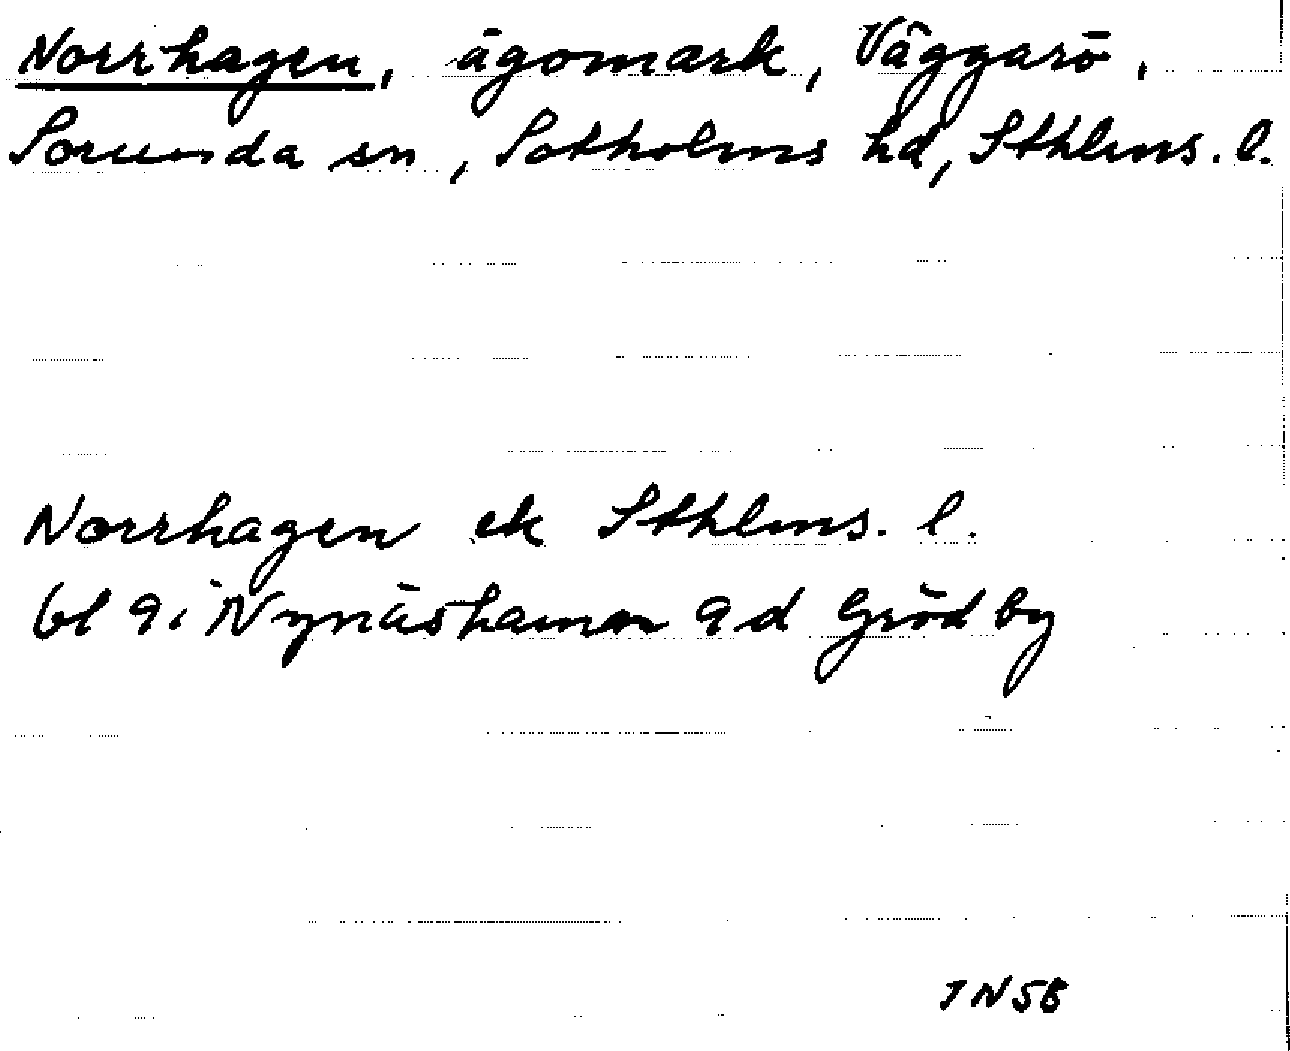 Norrhagen, ägomark, Väggarö,
Sorunda sn, Sotholms hd, Sthlms. l.
Norrhagen ek Sthlms. l.
bl 9i Nynäshamn 9d Grödby